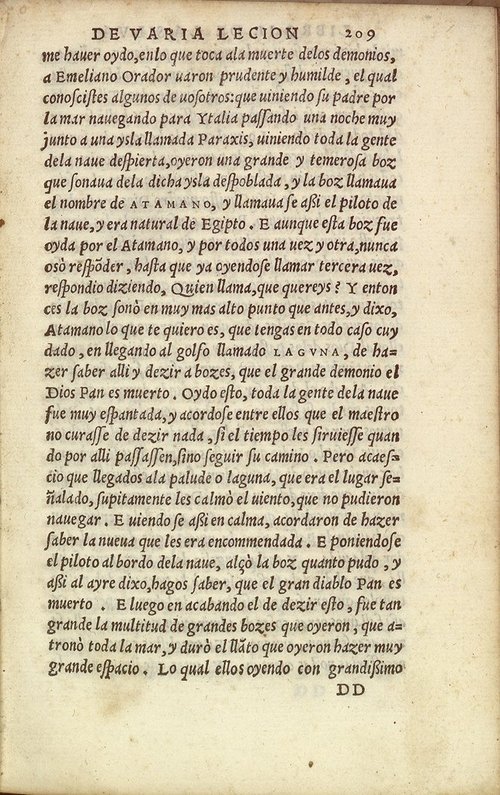 DE VARIA LECION 209
me hauer oydo, enlo que toca ala muerte delos demonios,
a Emeliano Orador uaron prudente y humilde, el qual
conoscistes algunos de uosotros: que uiniendo su padre por
la mar nauegando para Ytalia passando una noche muy
junto a una ysla llamada Paraxis, uiniendo toda la gente
dela naue despierta, oyeron una grande y temerosa boz
que sonaua dela dicha ysla despoblada, y la boz llamaua
el nombre de ATAMANO, y llamaua se assi el piloto de
la naue, y era natural de Egipto. E aunque esta boz fue
oyda por el Atamano, y por todos una uez y otra, nunca
osò respõder, hasta que ya oyendose llamar tercera uez,
respondio diziendo, Quien llama, que quereys? Y enton
ces la boz sonò en muy mas alto punto que antes, y dixo,
Atamano lo que te quiero es, que tengas en todo caso cuy
dado, en llegando al golfo llamado LAGVNA, de ha=
zer saber alli y dezir a bozes, que el grande demonio el
Dios Pan es muerto. Oydo esto, toda la gente dela naue
fue muy espantada, y acordose entre ellos que el maestro
no curasse de dezir nada, si el tiempo les siruiesse quan
do por alli passassen, sino seguir su camino. Pero acaes=
cio que llegados ala palude o laguna, que era el lugar se=
ñalado, supitamente les calmò el uiento, que no pudieron
nauegar. E uiendo se assi en calma, acordaron de hazer
saber la nueua que les era encommendada. E poniendose
el piloto al bordo dela naue, alçò la boz quanto pudo, y
assi al ayre dixo, hagos saber, que el gran diablo Pan es
muerto. E luego en acabando el de dezir esto, fue tan
grande la multitud de grandes bozes que oyeron, que a=
tronò toda la mar, y durò el llãto que oyeron hazer muy
grande espacio. Lo qual ellos oyendo con grandissimo
DD